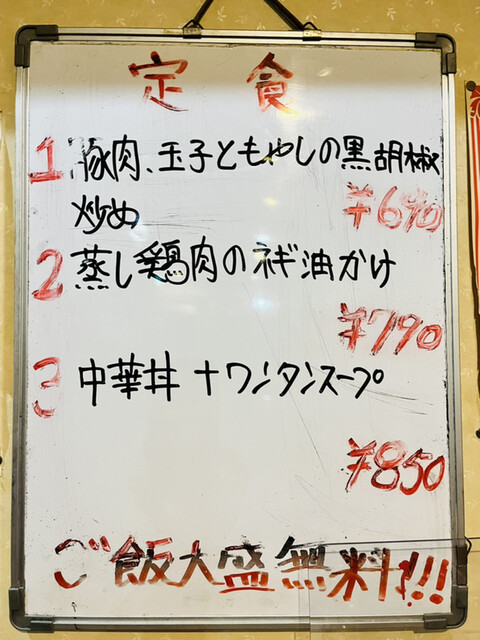 定食
1 豚肉、玉子ともやしの黒胡椒
炒め ¥690
2 蒸し鶏肉のネギ油かけ
¥790
3 中華丼+ワンタンスープ
¥850
ご飯大盛無料!!!